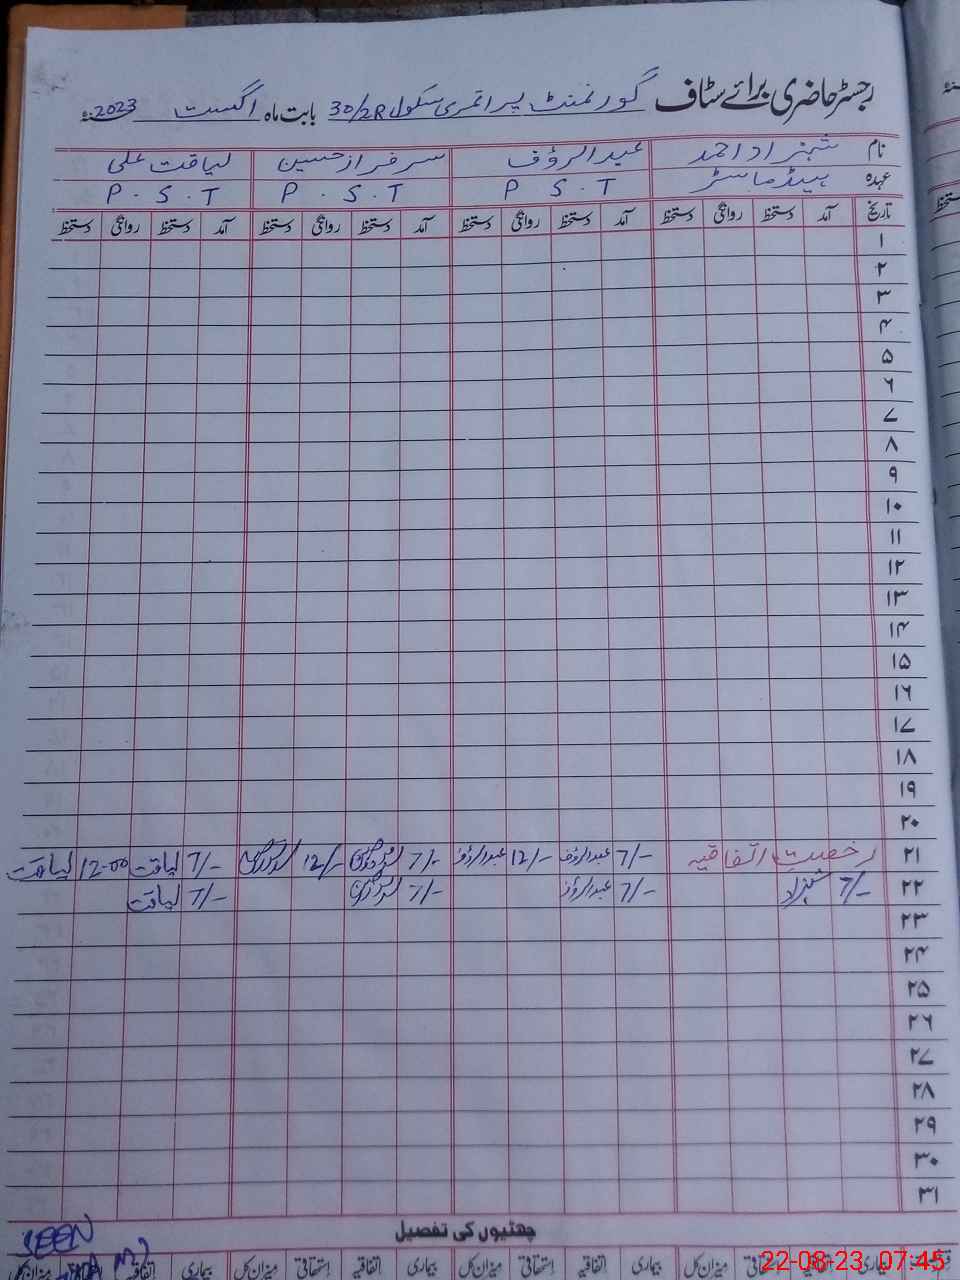 رجسٹر حاضری برائے سٹاف گورنمنٹ پرائمری سکول 30/2R بابت ماہ اگست 2023ء
نام شہزاد احمد عبدالرؤف سرفراز حسین لیاقت علی
عہدہ ہیڈ ماسٹر P.S.T P.S.T P.S.T
تاریخ آمد دستخط روانگی دستخط آمد دستخط روانگی دستخط آمد دستخط روانگی دستخط آمد دستخط روانگی دستخط
۱
۲
۳
۴
۵
۶
۷
۸
۹
۱۰
۱۱
۱۲
۱۳
۱۴
۱۵
۱۶
۱۷
۱۸
۱۹
۲۰
۲۱ رخصت اتفاقیہ 7/- عبدالرؤف 12/- عبدالرؤف 7/- 12/- 7/- لیاقت 12-00 لیاقت
۲۲ 7/- شہزاد 7/- عبدالرؤف 7/- 7/- لیاقت
۲۳
۲۴
۲۵
۲۶
۲۷
۲۸
۲۹
۳۰
۳۱
چھٹیوں کی تفصیل
SEEN
بیماری اتفاقیہ استحقاقی میزان کل بیماری اتفاقیہ استحقاقی میزان کل بیماری اتفاقیہ استحقاقی میزان کل بیماری اتفاقیہ میزان کل
22-08-23, 07:45